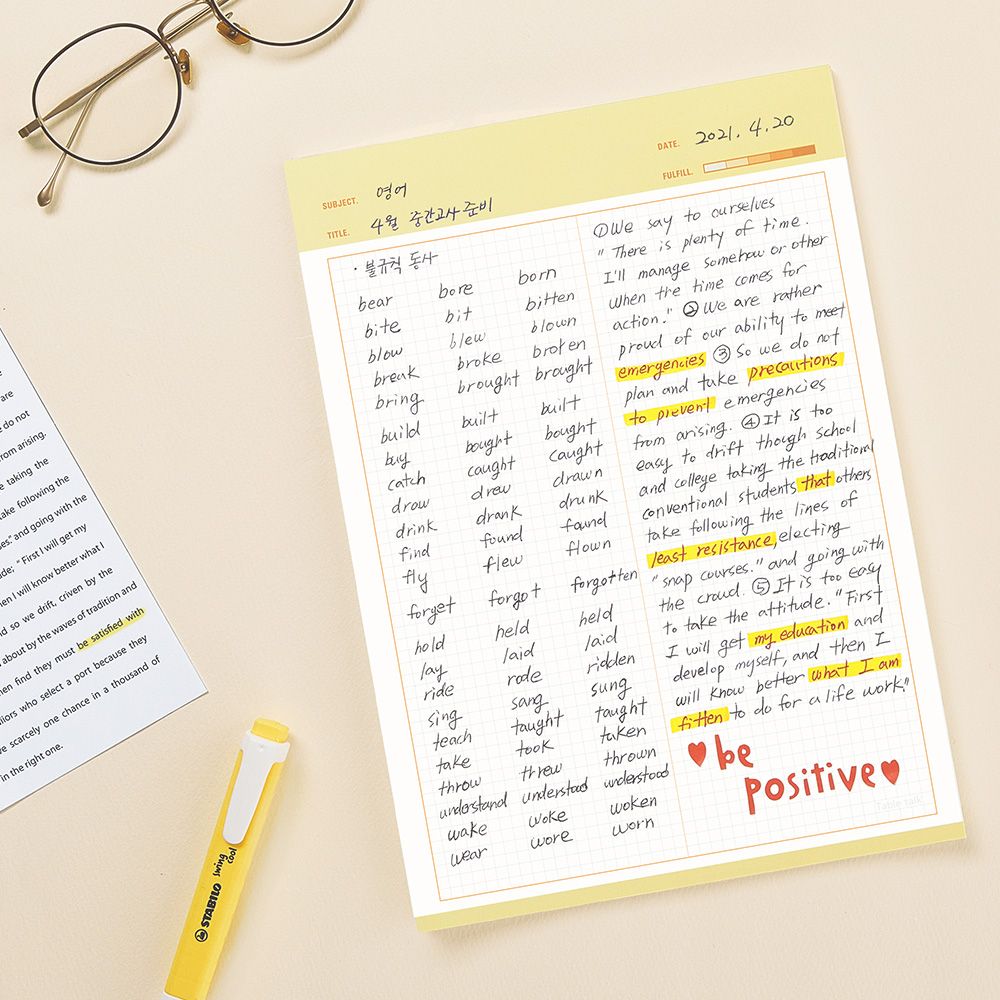 SUBJECT. 영어
TITLE. 4월 중간고사 준비
DATE. 2021. 4. 20
FULFILL.
· 불규칙 동사
bear bore born
bite bit bitten
blow blew blown
break broke broken
bring brought brought
build built built
buy bought bought
catch caught caught
draw drew drawn
drink drank drunk
find found found
fly flew flown
forget forgot forgotten
hold held held
lay laid laid
ride rode ridden
sing sang sung
teach taught taught
take took taken
throw threw thrown
understand understood understood
wake woke woken
wear wore worn
①We say to ourselves
"There is plenty of time.
I'll manage somehow or other
when the time comes for
action." ② We are rather
proud of our ability to meet
emergencies ③ So we do not
plan and take precautions
to prevent emergencies
from arising. ④It is too
easy to drift though school
and college taking the traditional
conventional students that others
take following the lines of
least resistance, electing
"snap courses." and going with
the croud. ⑤It is too easy
to take the attitude. "First
I will get my education and
develop myself, and then I
will know better what I am
fitten to do for a life work."
be
positive
are
do not
from arising.
taking the
take following the
and going with the
ade; "First I will get my
en I will know better what I
nd so we drift, criven by the
about by the waves of tradition and
hen find they must be satisfied with
ilors who select a port because they
ve scarcely one chance in a thousand of
in the right one.
STABILO swing cool